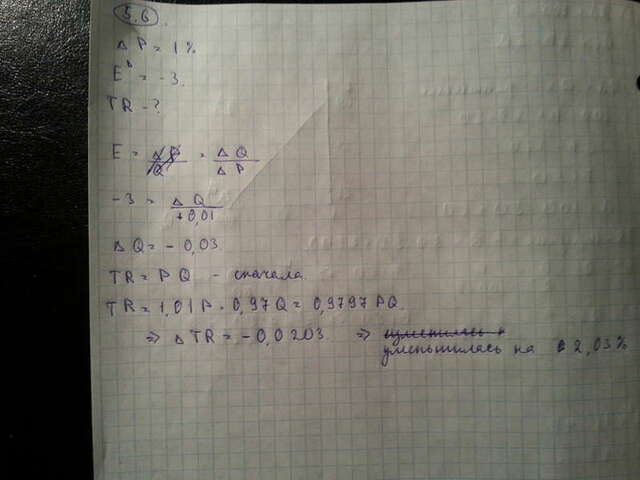 5.6.
Δ P = 1%
E^D = -3.
TR - ?
E = ΔP/Q = ΔQ/ΔP
-3 = ΔQ/+0,01
ΔQ = - 0,03
TR = PQ - сначала
TR = 1,01P · 0,97Q = 0,9797 PQ.
⇒ ΔTR = -0,0203 ⇒
уменьшилась на 2,03%